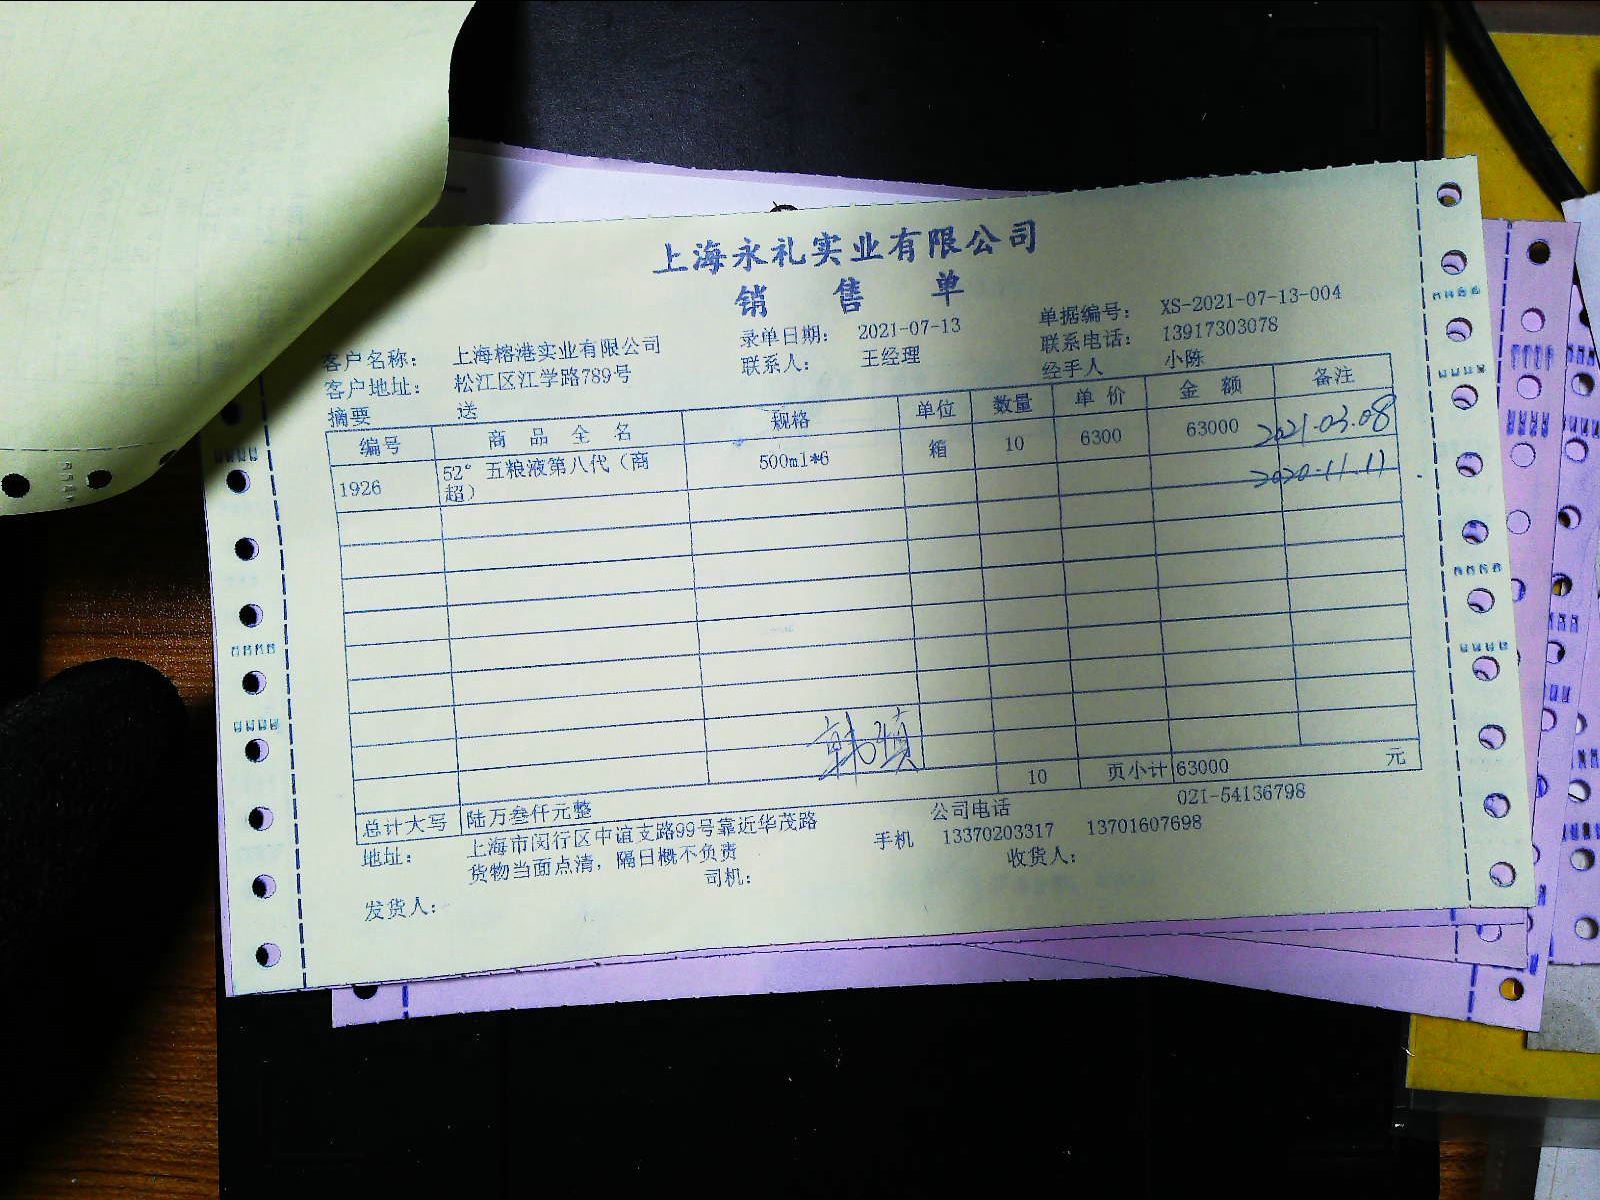 上海永礼实业有限公司
销 售 单
客户名称： 上海榕港实业有限公司 录单日期： 2021-07-13 单据编号： XS-2021-07-13-004
客户地址： 松江区江学路789号 联系人： 王经理 联系电话： 13917303078
摘要 送 经手人 小陈
编号 商 品 全 名 规格 单位 数量 单 价 金 额 备注
1926 52° 五粮液第八代（商超） 500ml*6 箱 10 6300 63000 2021.03.08
2020.11.11
韩
10 页小计 63000 元
总计大写 陆万叁仟元整 公司电话 021-54136798
地址： 上海市闵行区中谊支路99号靠近华茂路 手机 13370203317 13701607698
货物当面点清，隔日概不负责 收货人：
发货人： 司机：